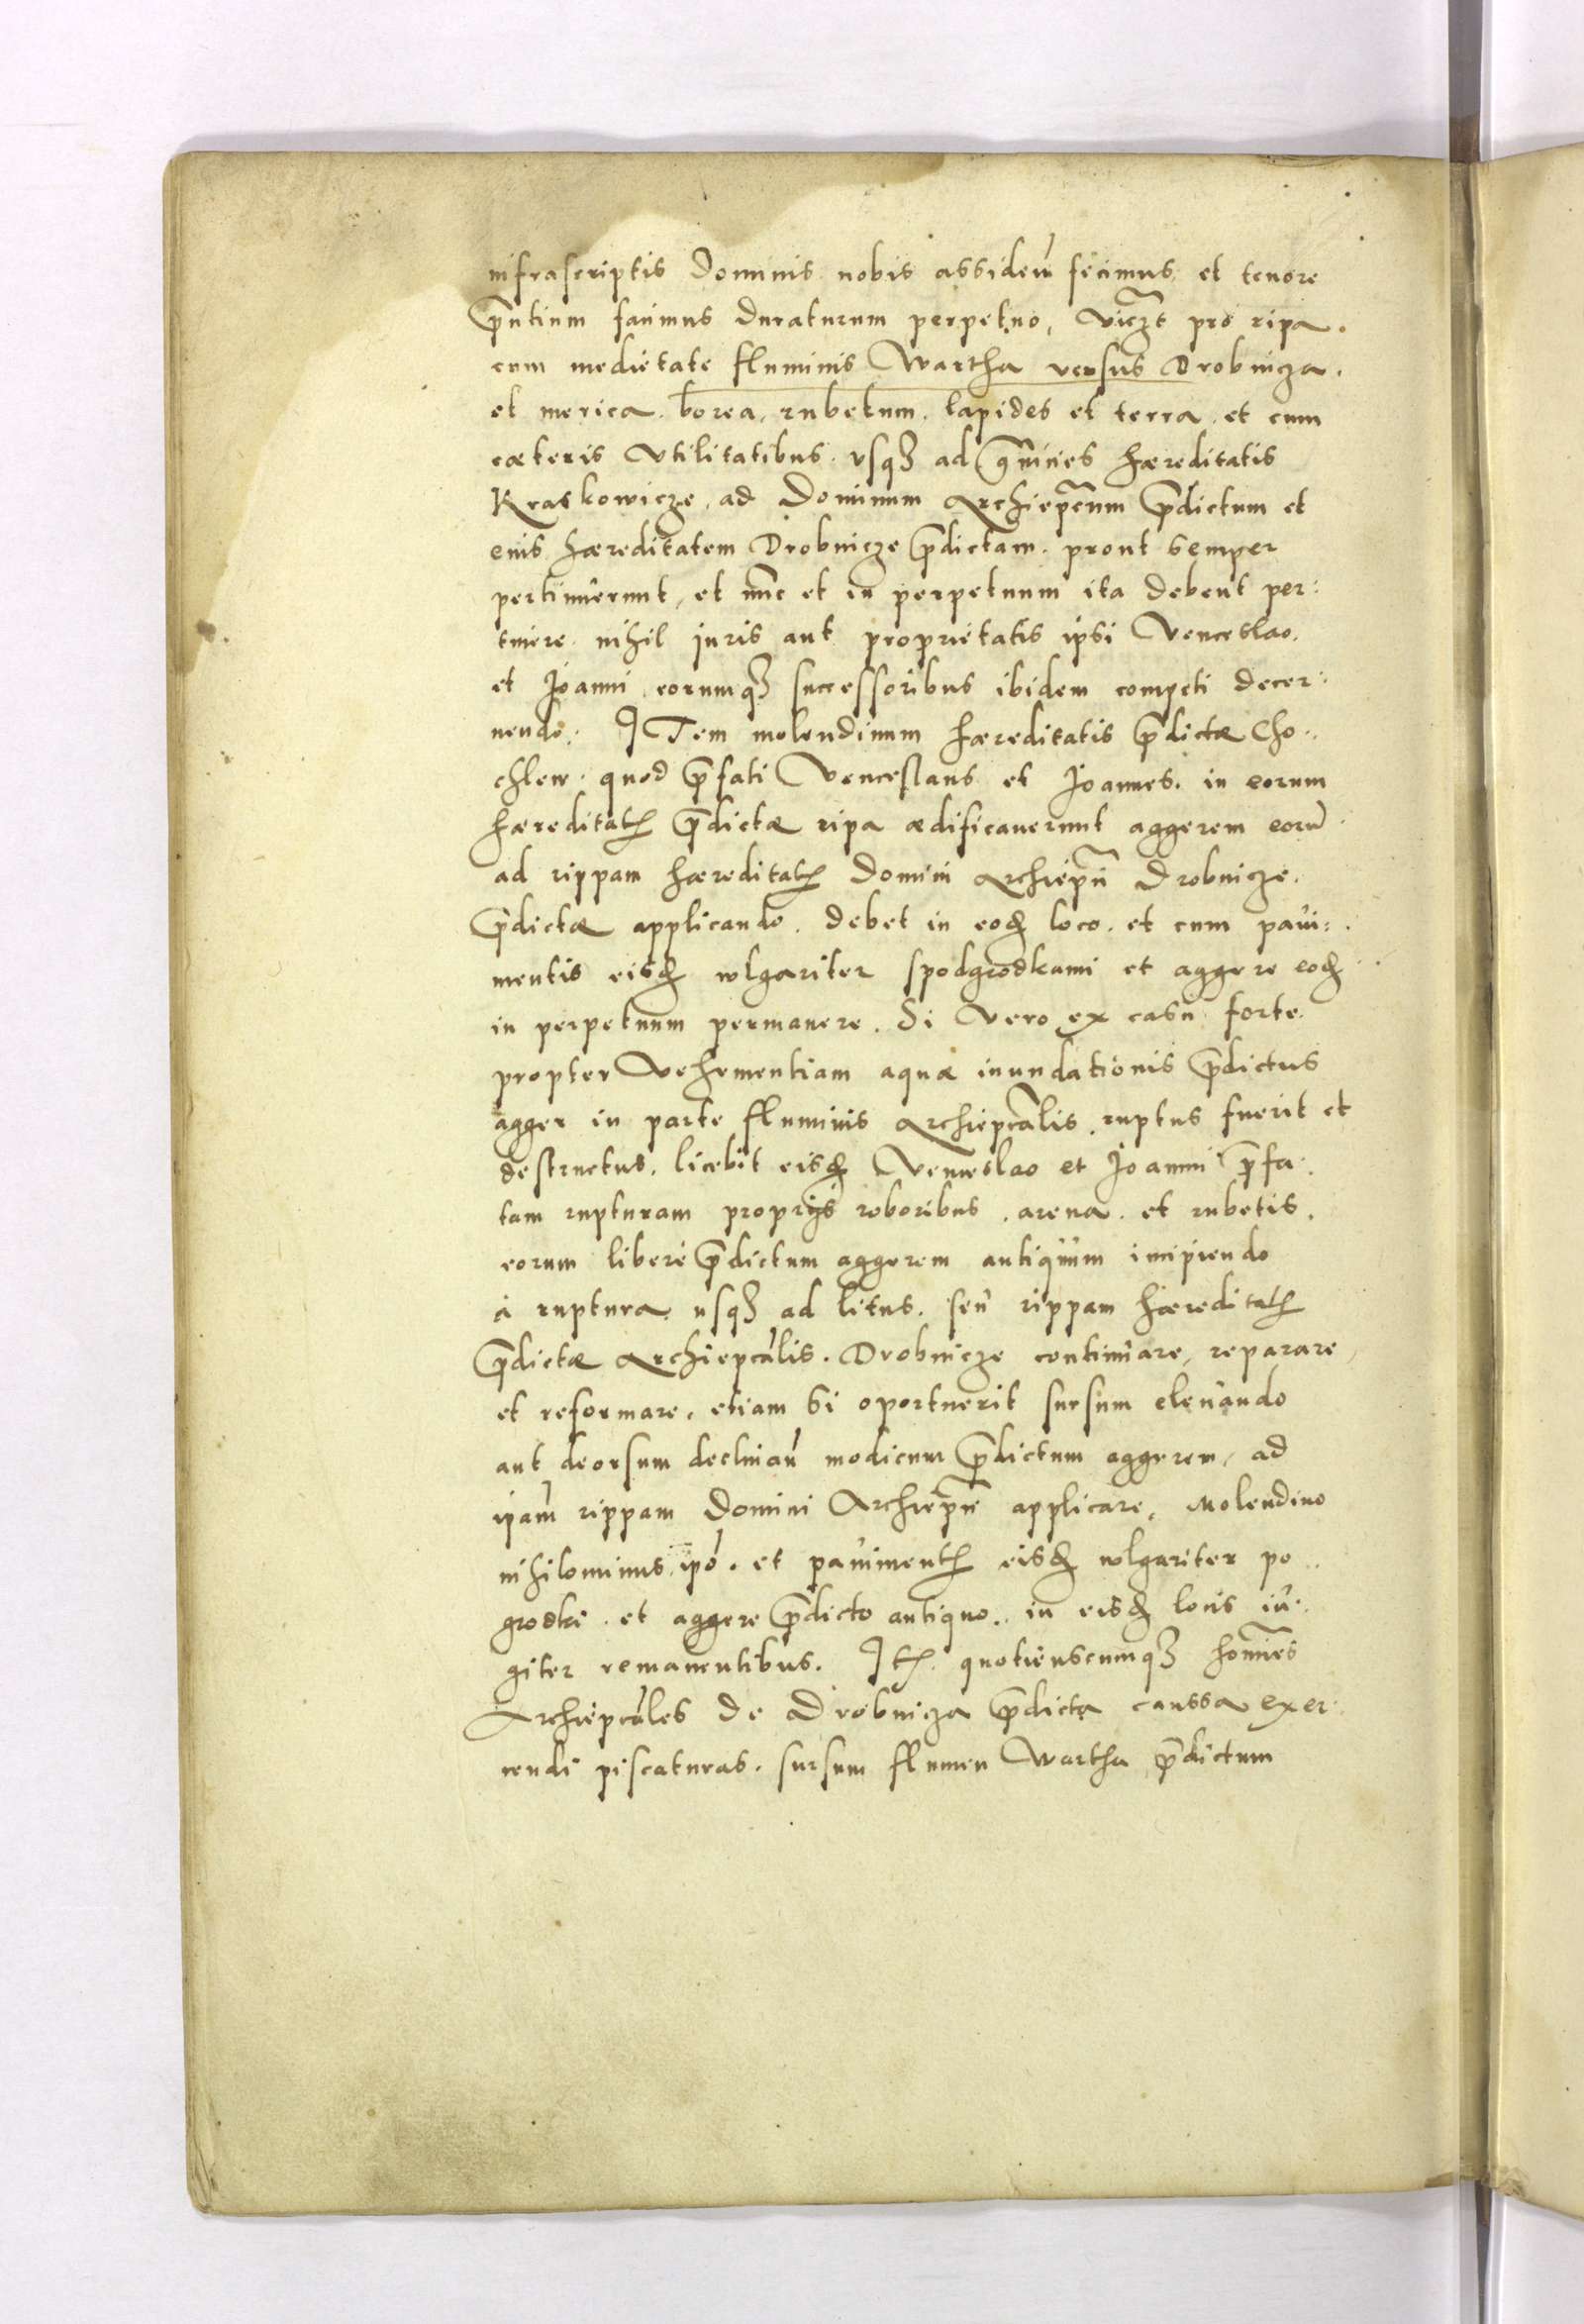 infrascriptis Dominis nobis assideñ fecimus et tenore
p̃ntium facimus duraturum perpetuo, viczt pro ripa.
cum medietate fluminis Wartha versus Drobnicza.
et merica. borea, rubetum. lapides et terra. et cum
cæteris vtilitatibus. vsqꝫ ad g̃nicies hæreditatis
Kraskowicze, ad Dominum Archiep̃cum p̃dictum et
eius hæreditatem Drobnicze p̃dictam. prout semper
pertinuerunt, et nũc et in perpetuum ita debent per:
tinere. nihil iuris aut proprietatis ipsi Venceslao.
et Joanni eorumqꝫ successoribus ibidem competi decer:
nendo: ITem molendinum hæreditatis p̃dictæ Cho:
chlew. quod p̃fati Venceslaus et Joannes. in eorum
hæreditatꝭ p̃dictæ ripa ædificauerunt aggerem eorũ
ad rippam hæreditatꝭ Domini Archiep̃ii Drobnicze.
p̃dictæ applicando. debet in eodꝫ loco. et cum paui:
mentis eisdꝫ wlgariter spodgrodkami et aggere eodꝫ
in perpetuum permanere. Si Vero ex casu forte.
propter Vehementiam aquæ inundationis p̃dictus
agger in parte fluminis Archiep̃calis ruptus fuerit et
destructus. licebit eisdꝫ Venceslao et Joanni p̃fa:
tam rupturam proprijs roboribus. arena. et rubetis.
eorum liberè p̃dictum aggerem antiquum incipiendo
à ruptura usqꝫ ad litus. seu rippam hæreditatꝭ
p̃dictæ Archiepcãlis. Drobnicze continuare, reparare,
et reformare. etiam si oportuerit sursum eleuando
aut deorsum declinañ modicum p̃dictum aggerem, ad
ipam̃ rippam Domini Archiep̃ii applicare. Molendino
nihilominus ip̃o. et pauimentꝭ eisdꝫ wlgariter po..
grodki. et aggere p̃dicto antiquo. in eisdꝫ locis iu:
giter remanentibus. Itꝭ. quotienscumqꝫ hom̃ies
Archiepcãles de Drobnicza p̃dicta caussa exer:
cendi piscaturas. sursum flumen Wartha p̃dictum